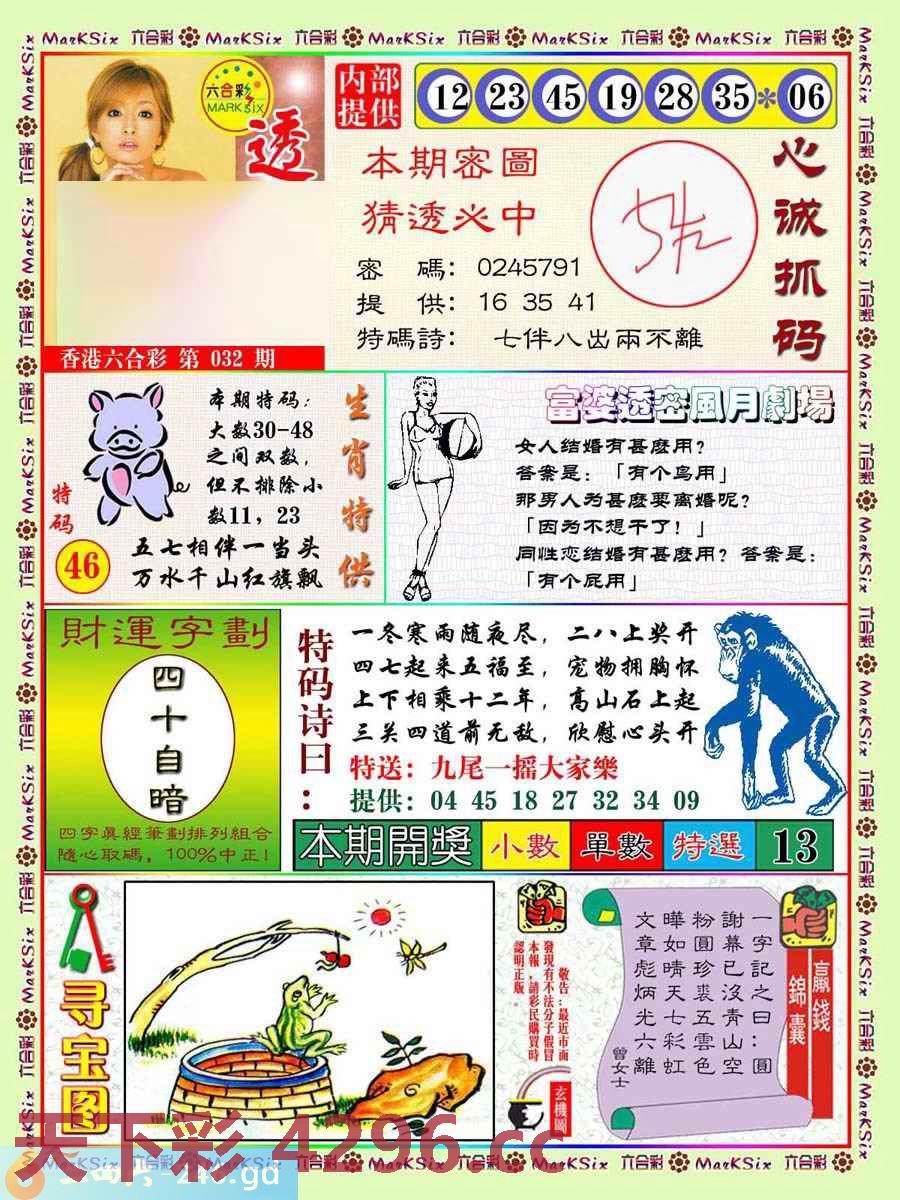 MarKSix 六合彩 MarKSix 六合彩 MarKSix 六合彩 MarKSix 六合彩 MarKSix 六合彩
六合彩
MARKSix
透
内部
提供
12 23 45 19 28 35 * 06
本期密圖
猜透必中
密 碼: 0245791
提 供: 16 35 41
特碼詩: 七伴八出兩不離
心诚抓码
香港六合彩 第 032 期
本期特码:
大数30-48
之间双数,
但不排除小
数11, 23
五七相伴一当头
万水千山红旗飘
生肖特供
特码
46
富婆透密風月劇場
女人结婚有甚麼用?
答案是: 「有个鸟用」
那男人为甚麼要离婚呢?
「因为不想干了! 」
同性恋结婚有甚麼用? 答案是:
「有个屁用」
財運字劃
四十自暗
四字真經筆劃排列組合
隨心取碼, 100%中正!
特码诗曰:
一冬寒雨随夜尽, 二八上奖开
四七起来五福至, 宠物拥胸怀
上下相乘十二年, 高山石上起
三关四道前无敌, 欣慰心头开
特送: 九尾一摇大家樂
提供: 04 45 18 27 32 34 09
本期開獎 小數 單數 特選 13
寻宝图
敬告:最近市面
發現有不法分子假冒
本報,請彩民購買時
認明正版。
玄機圖
一字記之曰:圓
謝幕已沒青山空
粉圓珍裘五雲色
曄如晴天七彩虹
文章彪炳光六離
曾女士
贏錢
錦囊
天下彩 4296.cc
MarKSix 六合彩 MarKSix 六合彩 MarKSix 六合彩 MarKSix 六合彩 MarKSix 六合彩